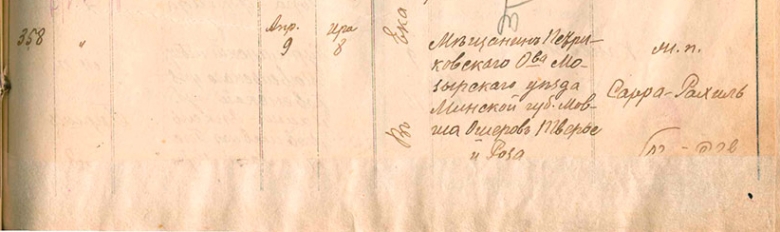 358 " Апр. 9 Ира 8
Ека
Въ
Мѣщанинъ Петри-
ковскаго О-ва Мо-
зырскаго уѣзда
Минской губ. Мов-
ша Ошеровъ Тверье
и Роза
м. п.
Сарра-Рахиль